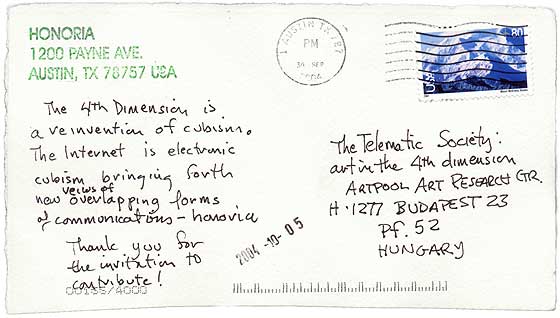 HONORIA
1200 PAYNE AVE.
AUSTIN, TX 78757 USA
AUSTIN TX 787
PM
30 SEP
2004
USA
80
The 4th Dimension is
a reinvention of cubism.
The Internet is electronic
cubism bringing forth
new views of overlapping forms
of communications - honoria
Thank you for
the invitation to
contribute!
The Telematic Society:
art in the 4th dimension
ARTPOOL ART RESEARCH CTR.
H-1277 BUDAPEST 23
Pf. 52
HUNGARY
2004-10-05
00135/4000